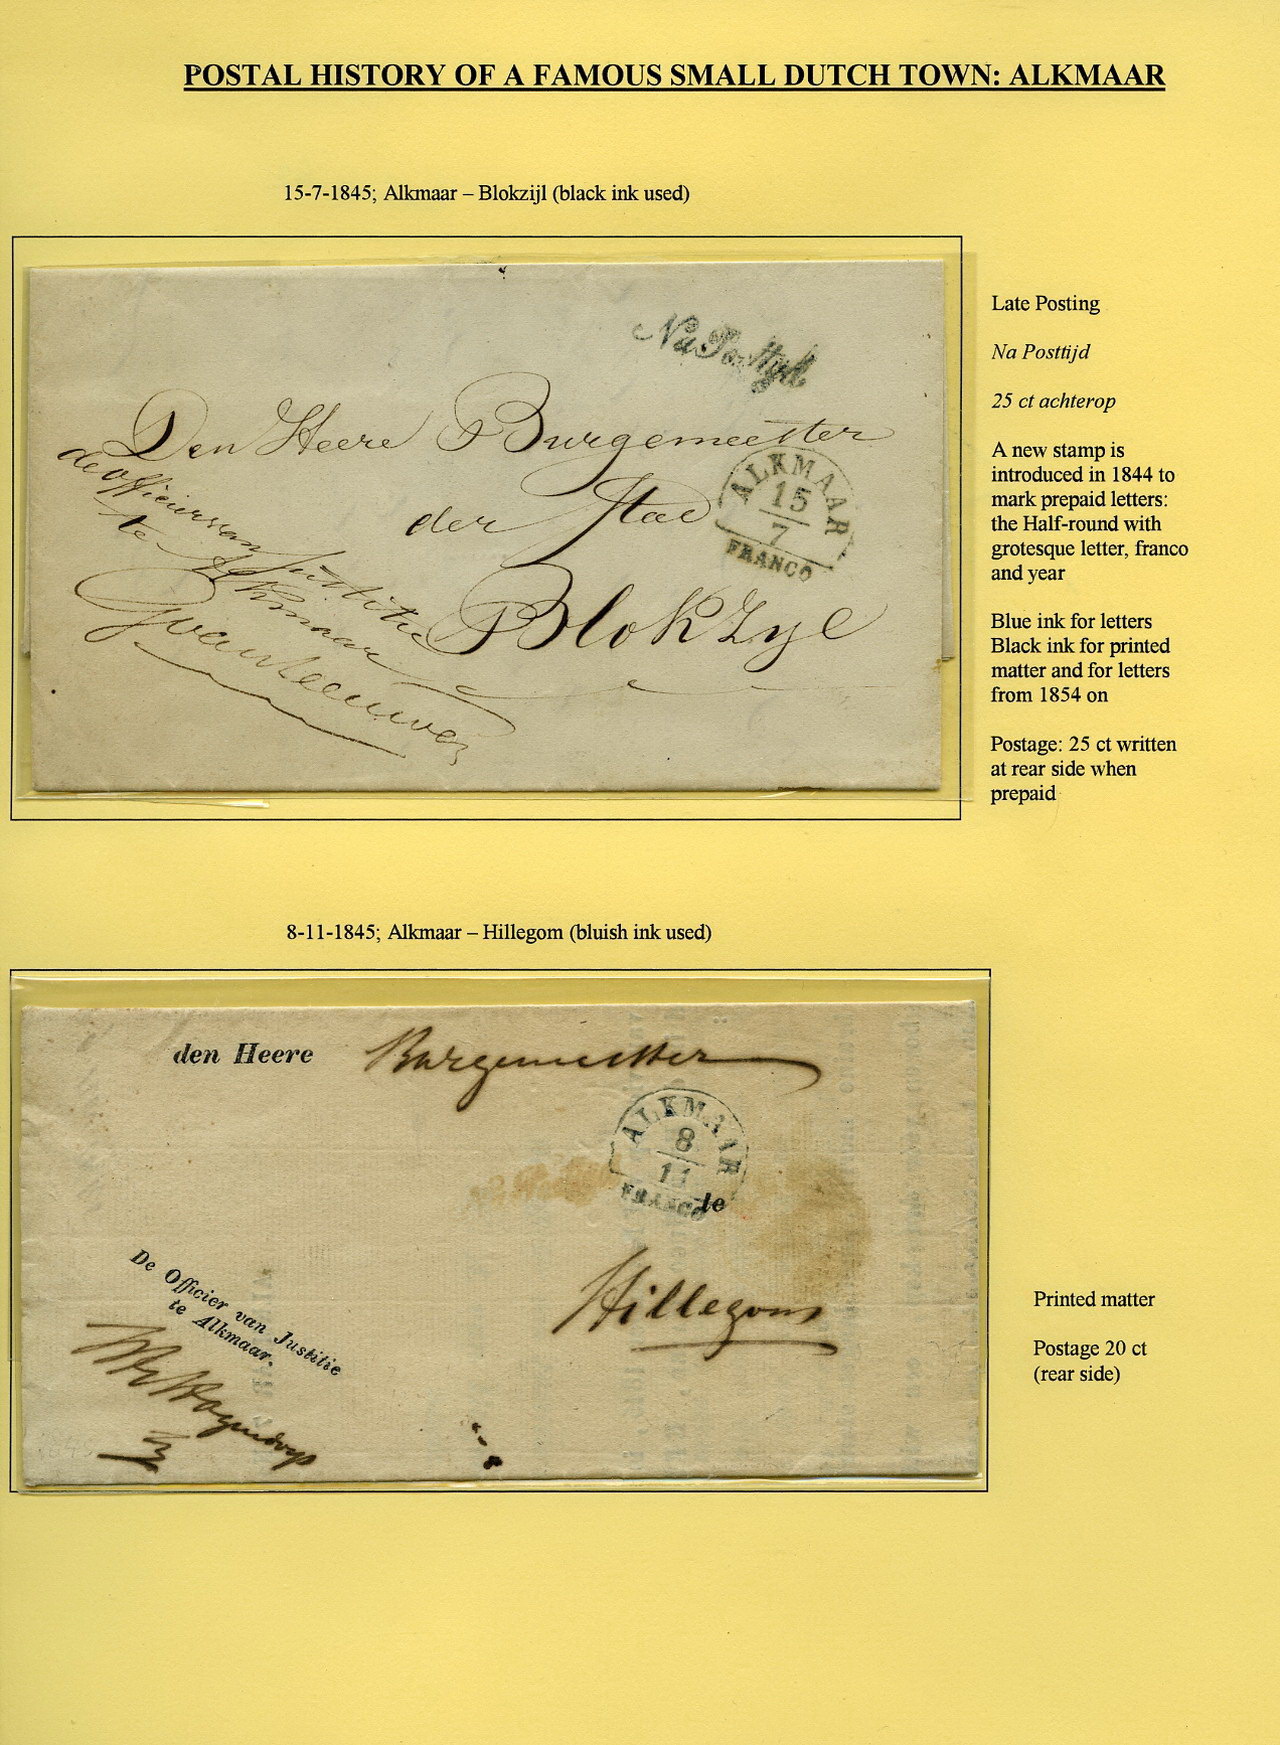 POSTAL HISTORY OF A FAMOUS SMALL DUTCH TOWN: ALKMAAR
15-7-1845; Alkmaar – Blokzijl (black ink used)
Na Posttyd
Den Heere Burgemeester
der Stad
Blokzyl
de officier van Justitie
te Alkmaar
van Leeuwen
ALKMAAR
15
7
FRANCO
Late Posting
Na Posttijd
25 ct achterop
A new stamp is
introduced in 1844 to
mark prepaid letters:
the Half-round with
grotesque letter, franco
and year
Blue ink for letters
Black ink for printed
matter and for letters
from 1854 on
Postage: 25 ct written
at rear side when
prepaid
8-11-1845; Alkmaar – Hillegom (bluish ink used)
den Heere Burgemeester
ALKMAAR
8
11
FRANCO
te
Hillegom
De Officier van Justitie
te Alkmaar.
Printed matter
Postage 20 ct
(rear side)